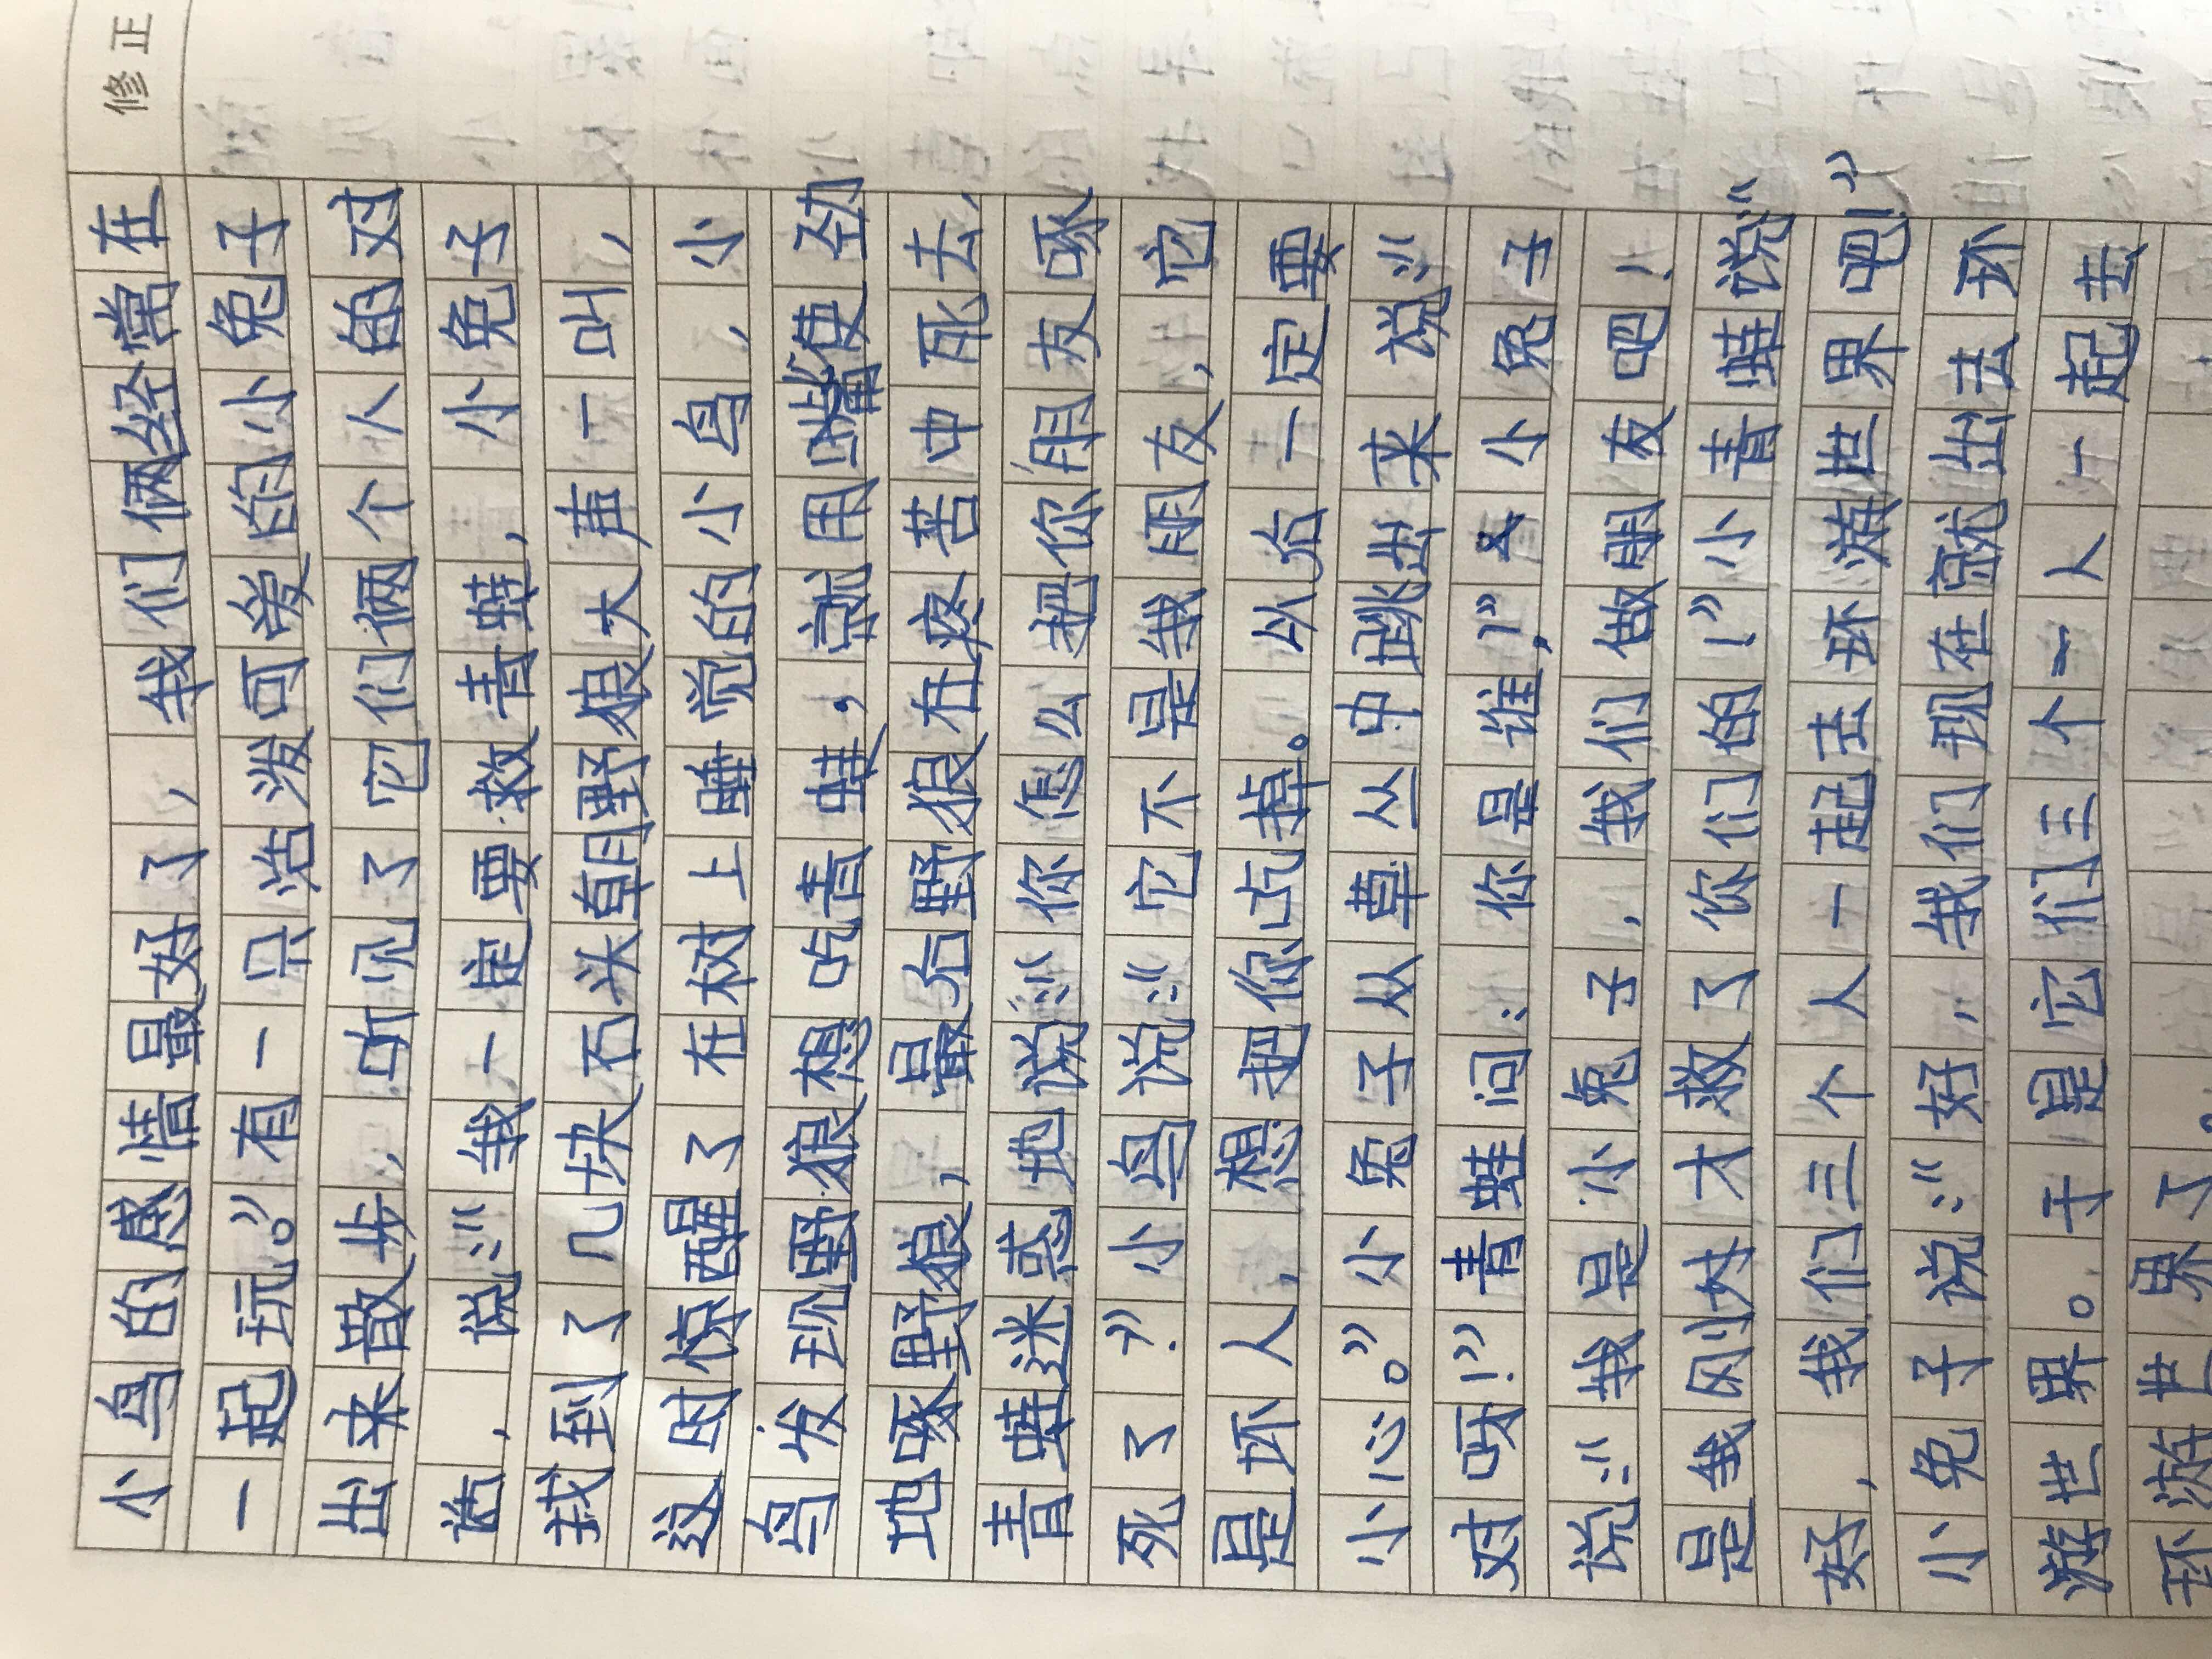 修正
小鸟的感情最好了，我们俩经常在
一起玩。”有一只活泼可爱的小兔子
出来散步，听见了它们俩个人的对
话，说：“我一定要救青蛙，小兔子
找到了几块石头朝野狼大声一叫，
这时惊醒了在树上睡觉的小鸟，小
鸟发现野狼想吃青蛙，就用嘴使劲
地啄野狼，最后野狼在疼苦中死去，
青蛙迷惑地说：“你怎么把你朋友啄
死了？”小鸟说：“它不是我朋友，它
是坏人，想把你吃掉。从后一定要
小心。”小兔子从草丛中跳出来说：“
对呀！”青蛙问：你是谁，？”小兔子
说：“我是小兔子，我们做朋友吧！
是我刚才大救了你们的！”小青蛙说：“
好，我们三个人一起去环游世界吧！”
小兔子说：“好，我们现在就出去环
游世界。于是它们三个一人一起去
环游世界了。